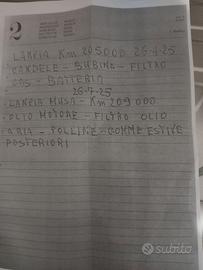 2
LANCIA KM 205000 26-4-25
CANDELE - BUBINE - FILTRO
GAS - BATTERIA
26-7-25
LANCIA MUSA - KM 209000
OLIO MOTORE - FILTRO OLIO
ARIA - POLLINE - GOMME ESTIVE
POSTERIORI
subito